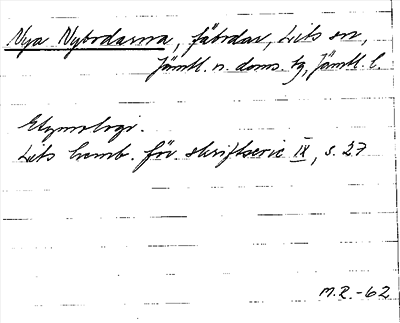 Nya Nybodarna, fäbodar, Lits sn,
Jämtl. n. doms. tg, Jämtl. l.
Etymologi.
Lits hemb. för. skriftserie IX, s. 27
M.R.-62